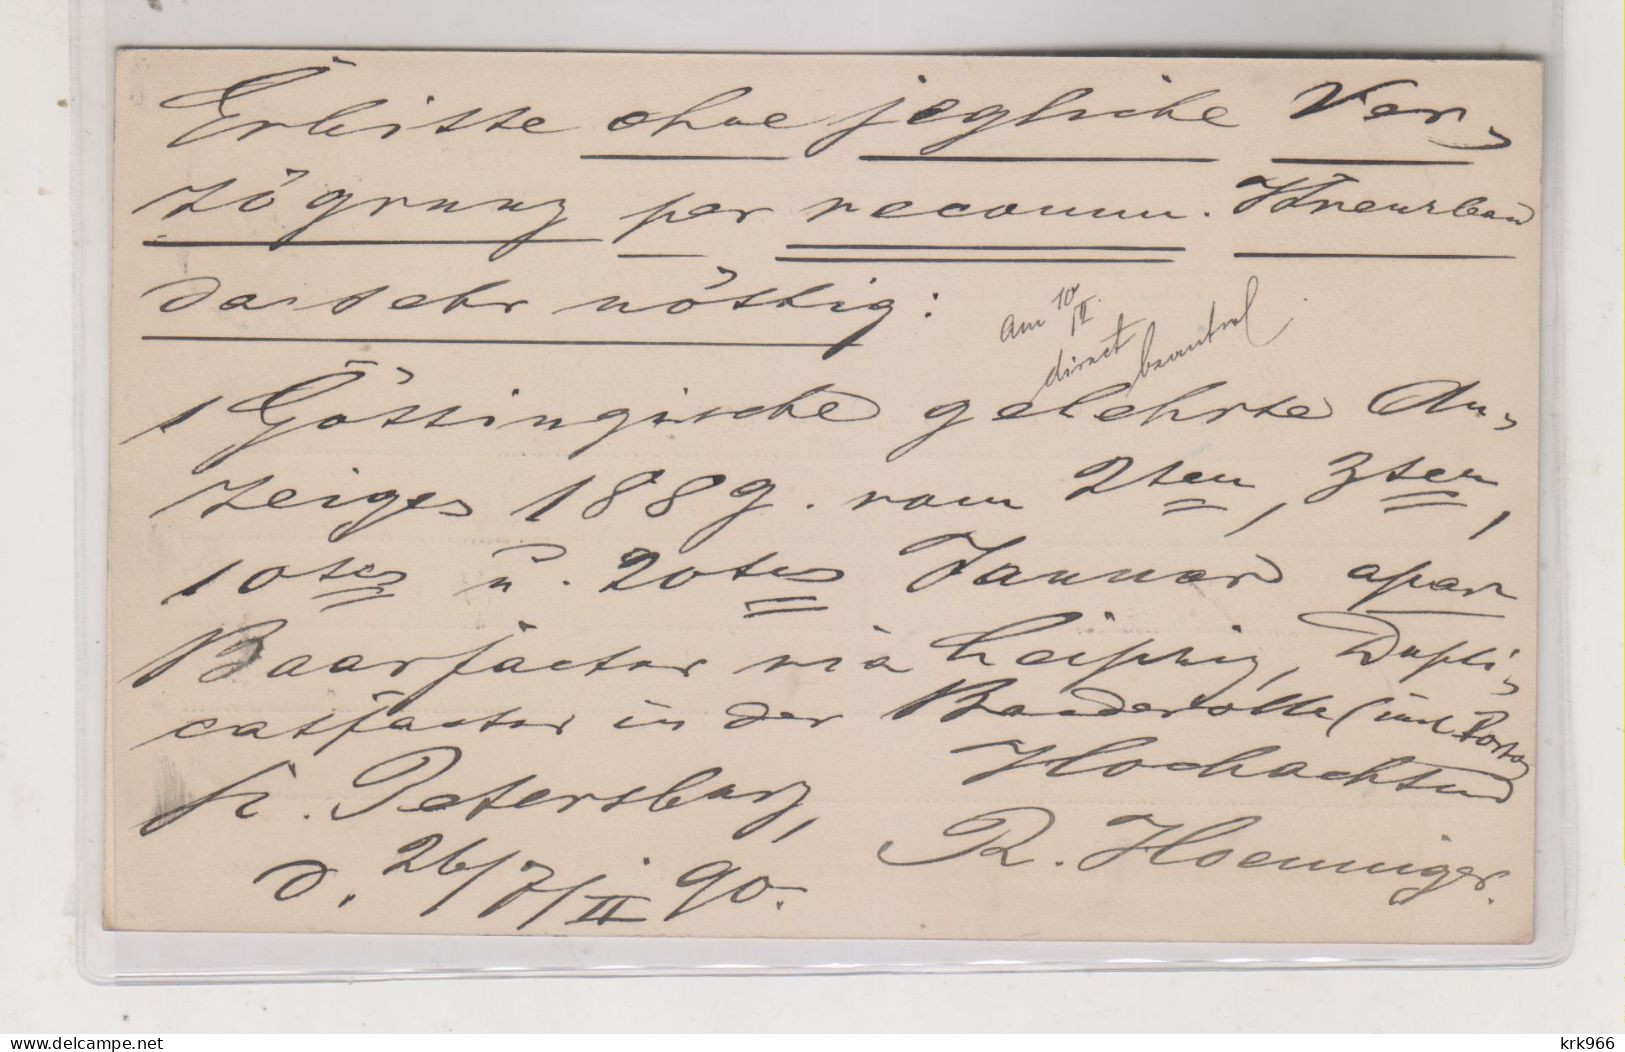 Erbitte ohne jegliche Ver-
zögrung per recomm. Kreuzband
da sehr nöthig:
am 10/II.
direct
1 Göttingische gelehrte An-
zeiges 1889. vom 2ten, 3ten,
10tes u. 20tes Januar apar
Baarfactur via Leipzig, Dupli-
catfactur in der Banderolle (incl Porto
Hochachtend
St. Petersburg,
d. 26/7/II 90.
R. Hoenniger.
delcampe.net
krk966